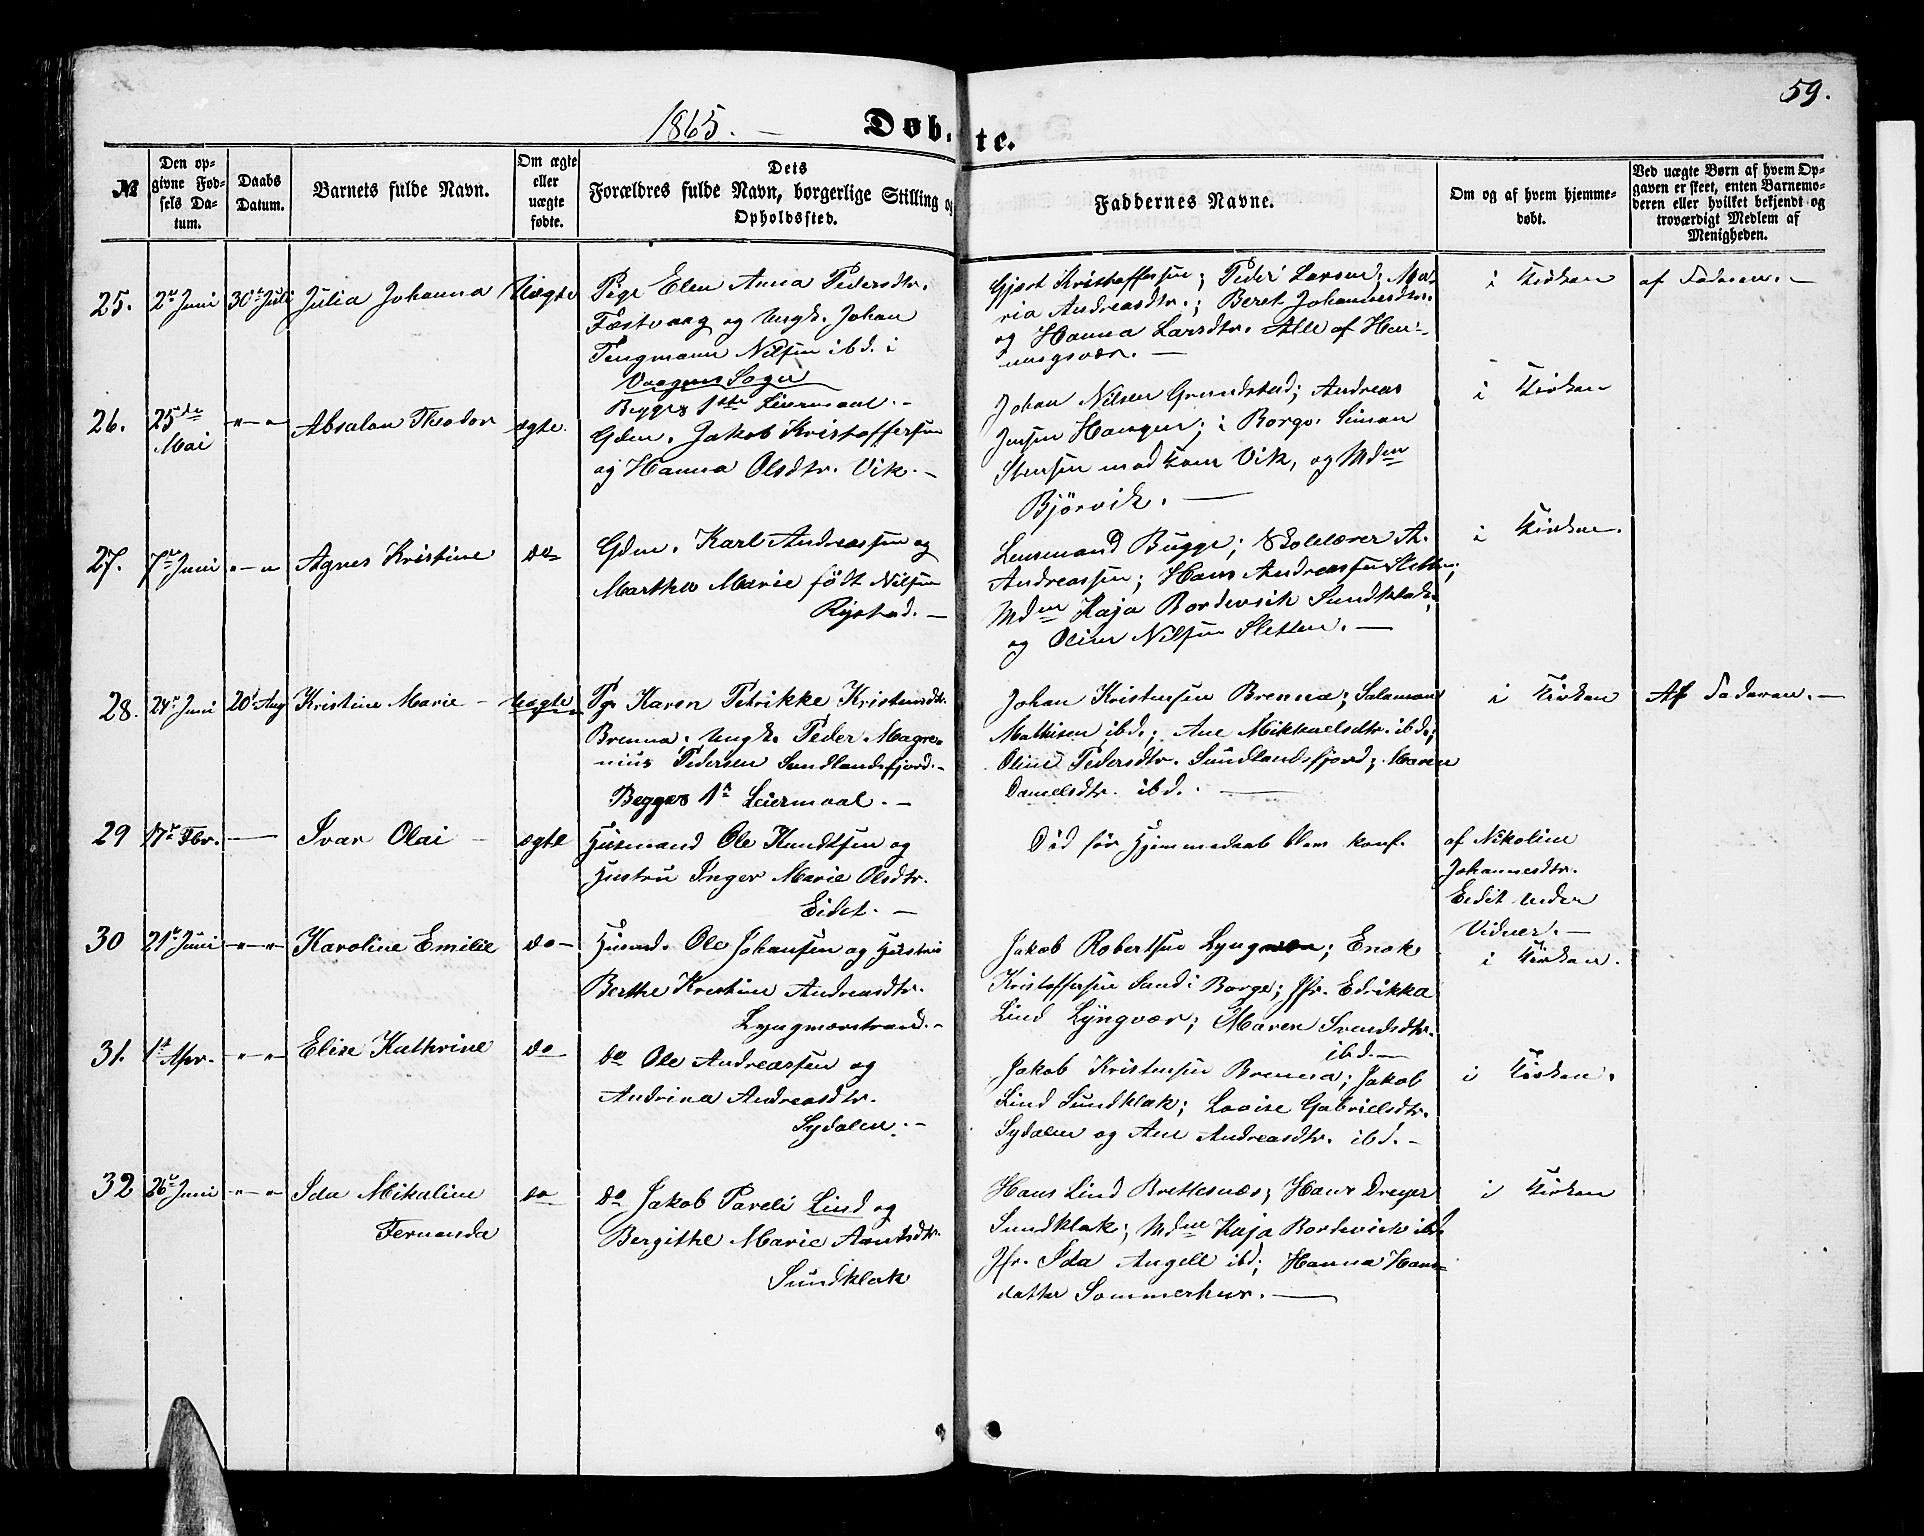 59.
1865. — Døb- te.
№
Den op-
givne Fød-
sels Da-
tum.
Daabs
Datum.
Barnets fulde Navn.
Om ægte
eller
uægte
fødte.
Dets
Forældres fulde Navn, borgerlige Stilling og
Opholdssted.
Faddernes Navne.
Om og af hvem hjemme-
døbt.
Ved uægte Børn af hvem Op-
gaven er skeet, enten Barnemo-
deren eller hvilket bekjendt og
troværdigt Medlem af
Menigheden.
25. 2 Juni 30 Juli Julia Johanna Uægte
Pige Elen Anna Pedersdtr.
Festvaag og Ungk. Johan
Tengmann Nilsen ibd. i
Vaagens Sogn
Begges 1ste Leiermaal. —
Gjert Kristoffersen; Peder Larsen; Ma-
ria Andreasdtr.; Beret Johannesdtr.
og Hanna Larsdtr. Alle af Hen-
ningsvær. —
i Kirken
af Faderen. —
26. 25de
Mai
Absalon Theodor ægte.
Gdm. Jakob Kristoffersen
og Hanna Olsdtr. Vik. —
Johan Nilsen Grundstad; Andreas
Jensen Haugen; i Borge. Simon
Stensen med Kone Vik, og Mdm
Bjørvik. —
i Kirken
27. 7 Juni Agnes Kristine do
Gdm. Karl Andreassen og
Marthea Marie født Nilsen
Rystad. —
Lensmand Bugge; Skolelærer A.
Andreassen; Hans Andreassen
Mdm Kaja Bordevick Sundklak;
og Oline Nilsen Sletten. —
i Kirken.
28. 24 Juni 20 Aug Kristine Marie — Uægte
Pge Karen Petrikke Kristensdtr.
Brenna; Ungk. Peder Magre-
nius Pedersen Sundlandsfjord. —
Begges 1ste Leiermaal. —
Johan Kristensen Brenna; Salamon
Mathisen ibd.; Ane Mikkaelsdtr. ibd.;
Oline Pedersdtr. Sundlandsfjord; Maren
Danielsdtr. ibd. —
i Kirken
Af Faderen. —
29 17 Fbr. — Ivar Olai — ægte
Husmand Ole Knudtsen og
Hustru Inger Marie Olsdtr.
Eidet. —
Død før Hjemmedaab blev konf.
af Nikoline
Johannesdtr.
Eidet under
Vidner. —
30 21 Juni Karoline Emilie do —
Husmd. Ole Johansen og Hustru
Berthe Kristine Andreasdtr.
Lyngværstrand. —
Jakob Robertsen Lyngvær; Enok
Kristoffersen Sand i Borge; Jfr. Edrikka
Lind Lyngvær; Maren Svendsdtr.
ibd. —
i Kirken.
31. 1 Apr. Elise Kathrine do
do Ole Andreassen og
Andrina Andreasdtr.
Sydalen. —
Jakob Kristensen Brenna; Jakob
Lind Sundklak; Lovise Gabrielsdtr.
Sydalen og Ane Andreasdtr. ibd. —
i Kirken.
32 26 Juni Ida Mikaline
Fernanda
do
do Jakob Pareli Lind og
Bergithe Marie Arntsdtr.
Sundklak
Hans Lind Brettesnæs; Hans Dreyer
Sundklak; Mdm Kaja Bordevick ibd.
Jfr. Ida Angell ibd; Hanna Hans-
datter Sommerhus. —
i Kirken